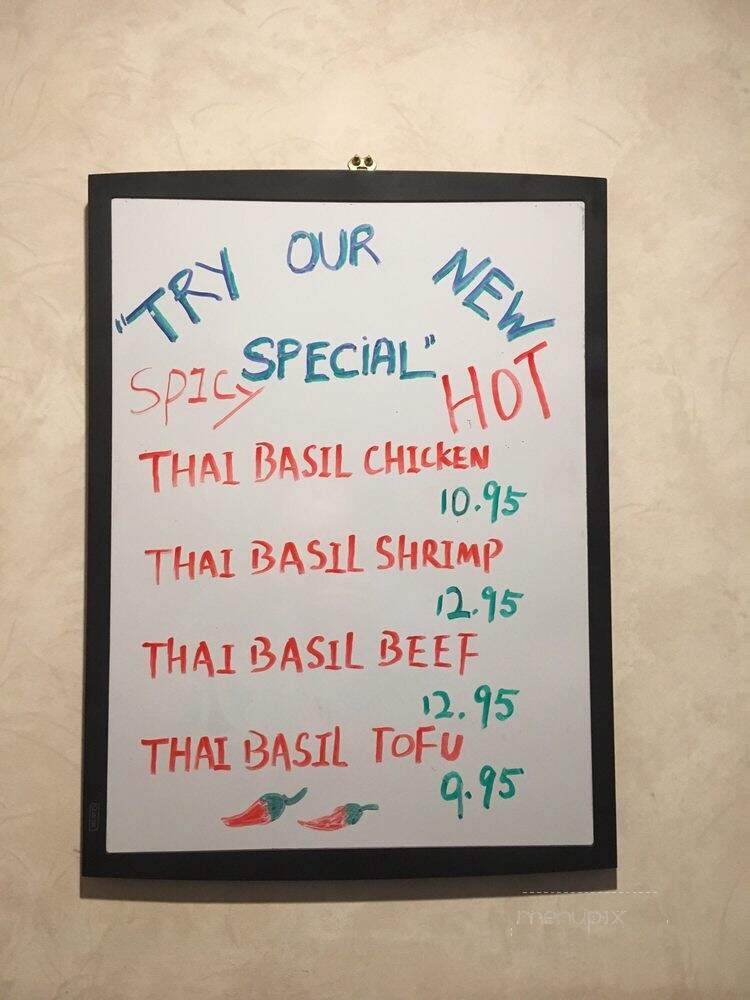 "TRY OUR NEW
SPECIAL"
SPICY HOT
THAI BASIL CHICKEN
10.95
THAI BASIL SHRIMP
12.95
THAI BASIL BEEF
12.95
THAI BASIL TOFU
9.95
menupix